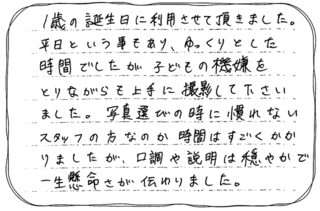 1歳の誕生日に利用させて頂きました。
平日という事もあり、ゆっくりとした
時間でしたが 子どもの機嫌を
とりながらも上手に撮影して下さい
ました。写真選びの時に慣れない
スタッフの方なのか 時間はすごくかか
りましたが、口調や説明は穏やかで
一生懸命さが伝わりました。